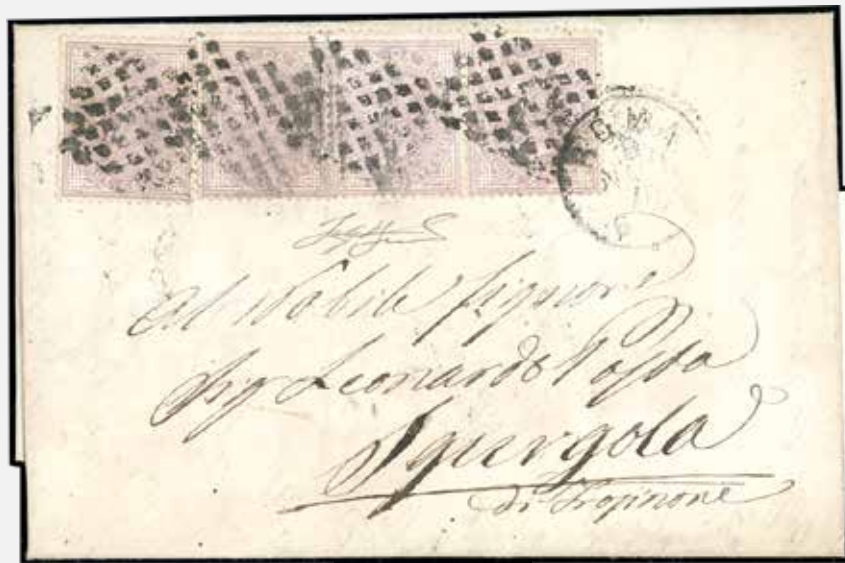 ROMA
Al Nobile Signore
Sigr Leonardo
Sgurgola
di Frosinone